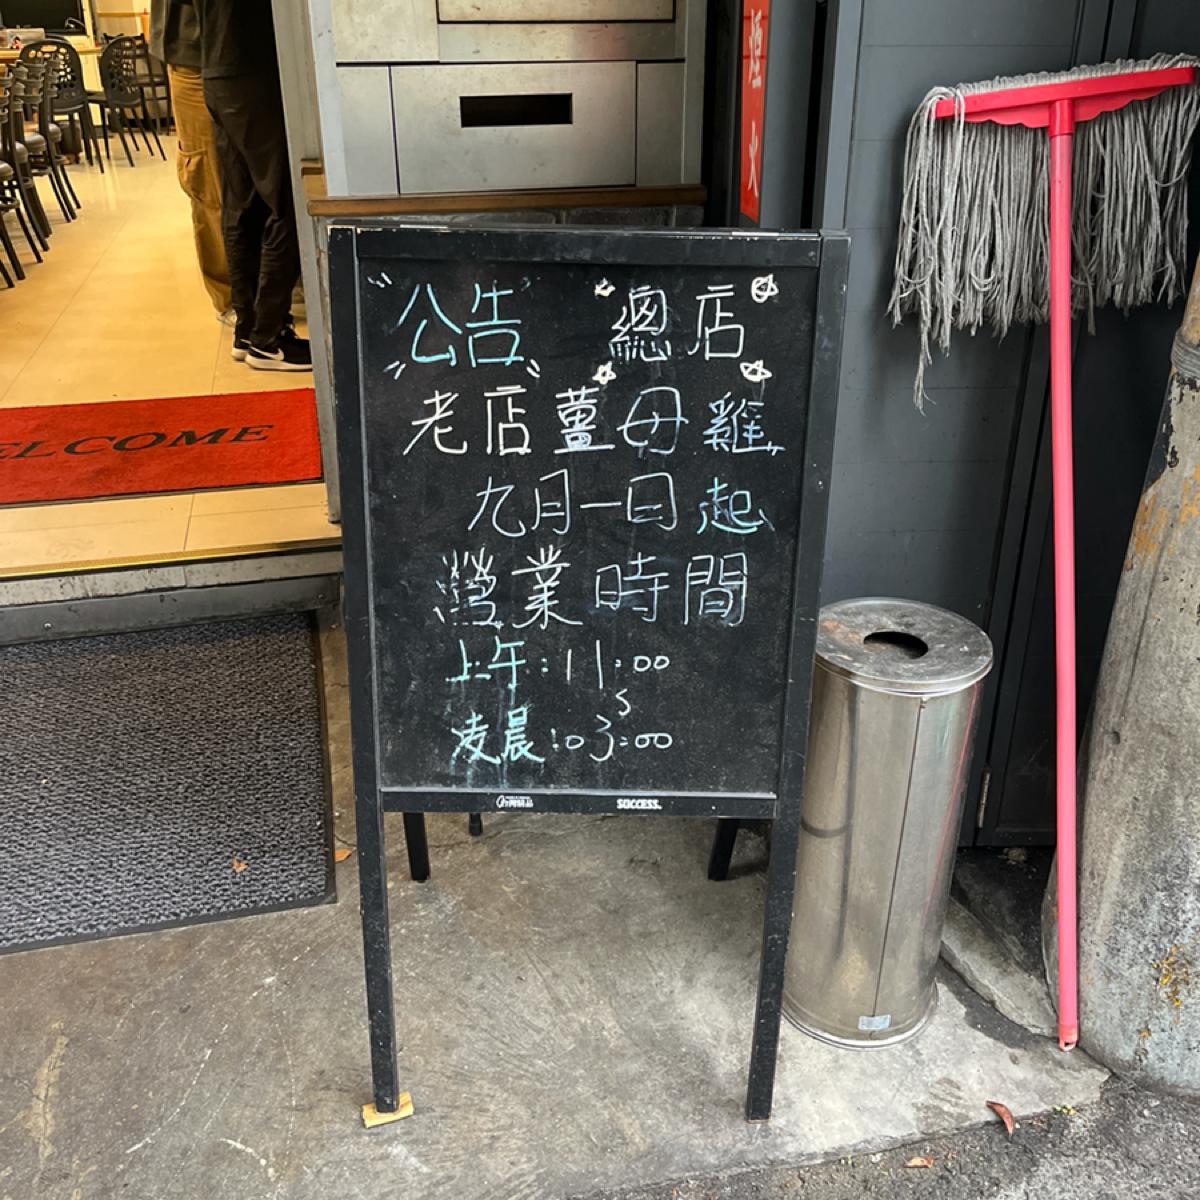 煙火
WELCOME
"公告" 總店
老店薑母雞
九月一日起
營業時間
上午:11:00
~
凌晨:03:00
SUCCESS.